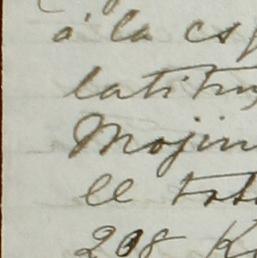 á la esp
latitu
Mojin
el tot
208 K